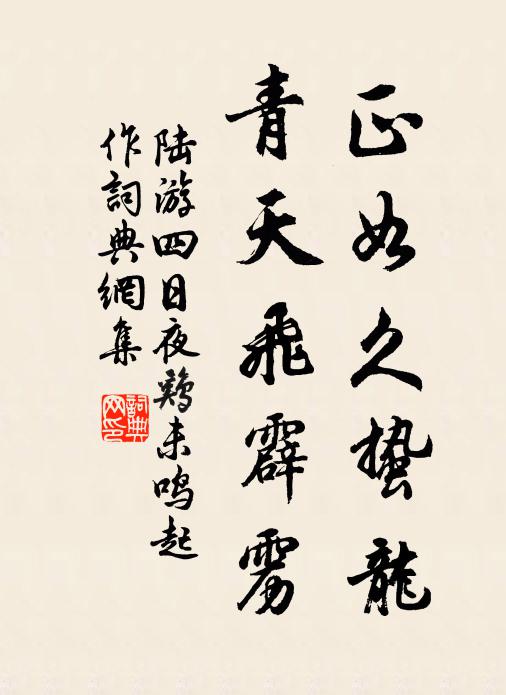 正如久蛰龍
青天飛霹雳
陆游四日夜鷄未鸣起
作詞典網集
詞典
网印